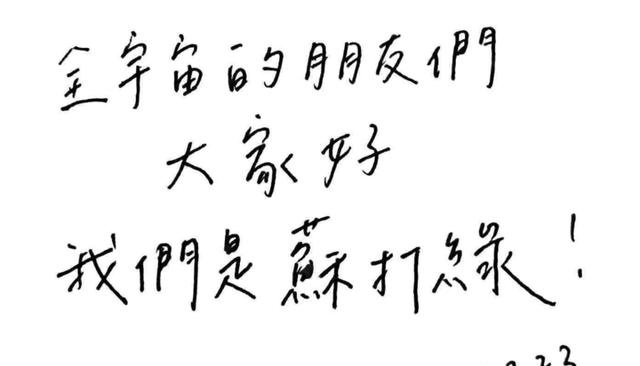 全宇宙的朋友們
大家好
我們是蘇打綠！